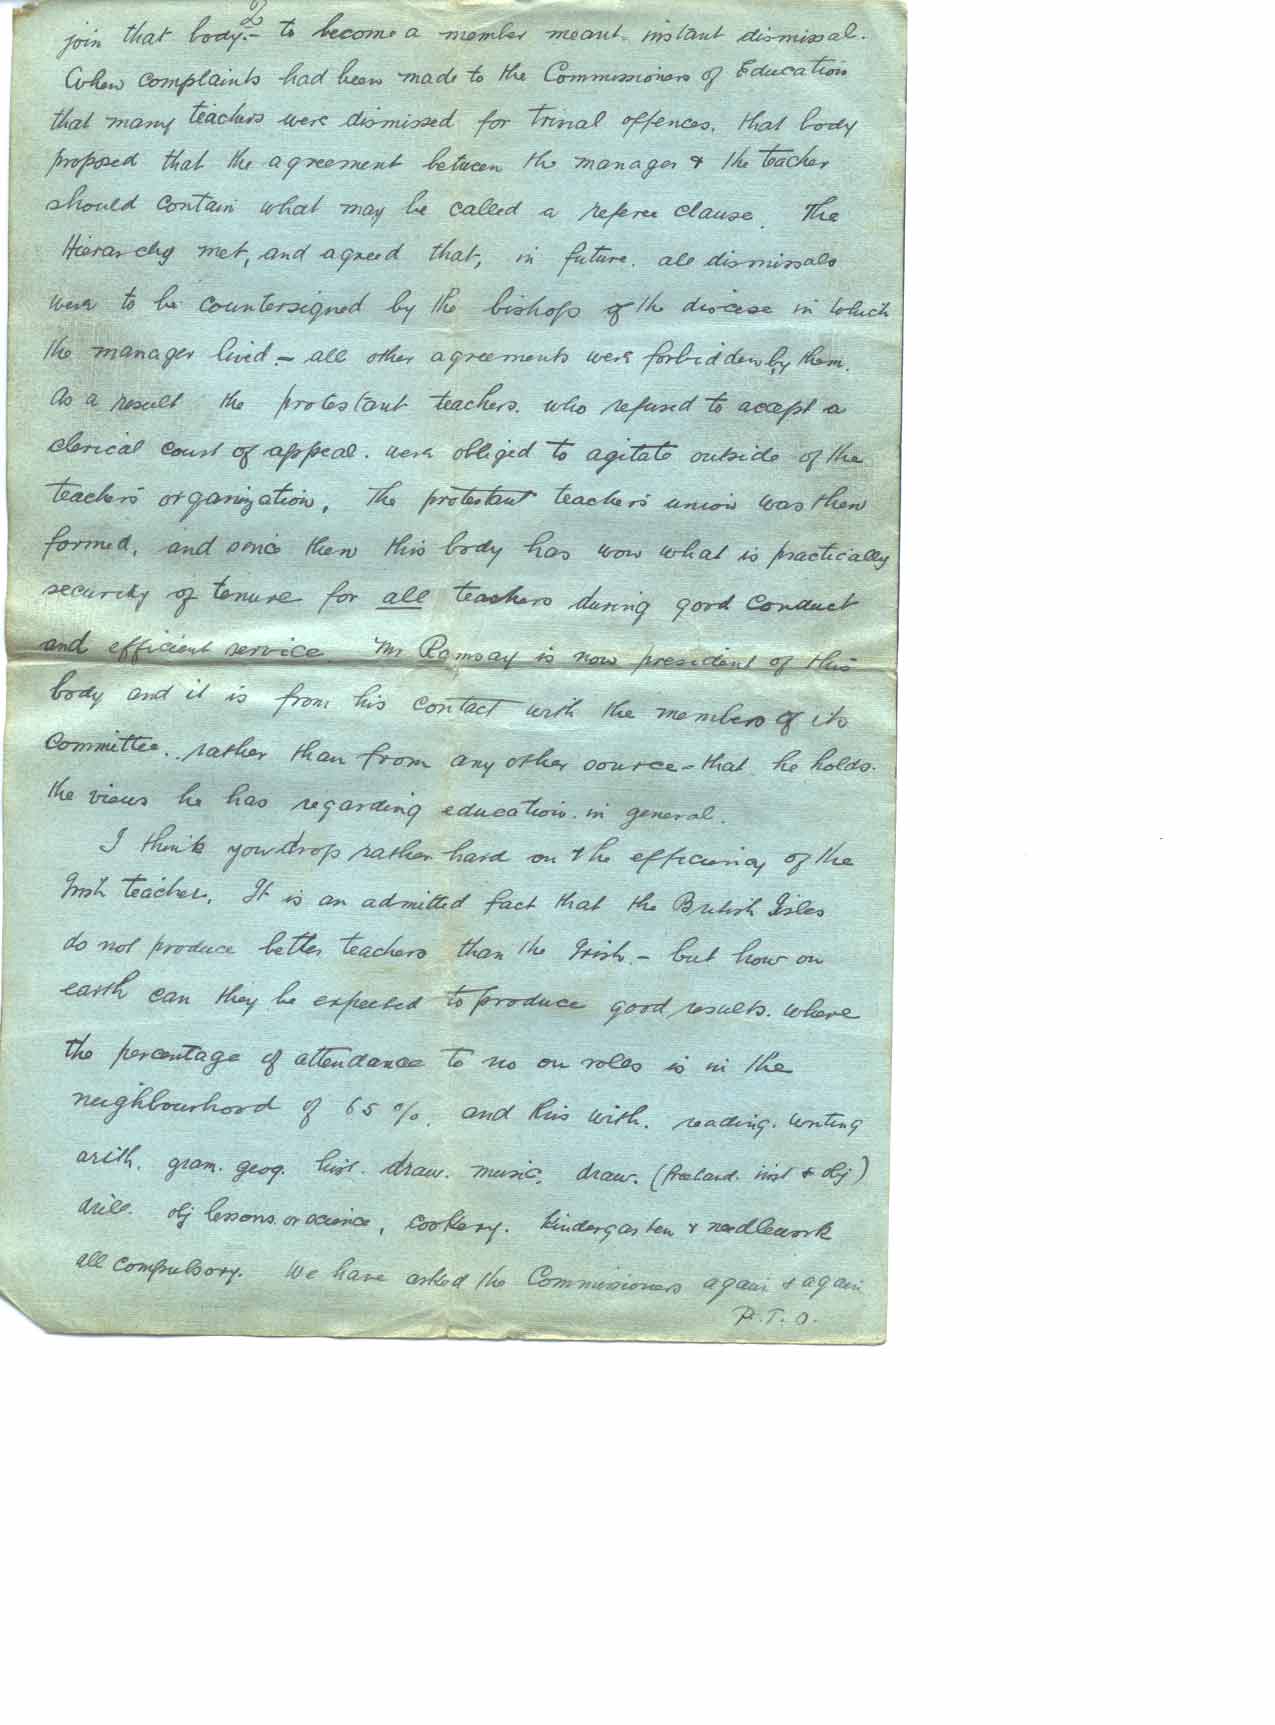 2
join that body.– to become a member meant instant dismissal.
When complaints had been made to the Commissioners of Education
that many teachers were dismissed for trivial offences, that body
proposed that the agreement between the manager & the teacher
should contain what may be called a referee clause. The
Hierarchy met, and agreed that, in future. all dismissals
were to be countersigned by the bishops of the diocese in which
the manager lived – all other agreements were forbidden by them.
As a result the protestant teachers. who refused to accept a
clerical court of appeal. were obliged to agitate outside of the
teachers organization. The protestant teachers union was then
formed, and since then this body has won what is practically
security of tenure for all teachers during good conduct
and efficient service. Mr Ramsay is now president of this
body and it is from his contact with the members of its
Committee. rather than from any other source – that he holds.
the views he has regarding education in general.
I think you drop rather hard on the efficiency of the
Irish teacher. It is an admitted fact that the British Isles
do not produce better teachers than the Irish. – but how on
earth can they be expected to produce good results. where
the percentage of attendance to no on roles is in the
neighbourhood of 65 %. and this with. reading. writing
arith. gram. geog. hist. draw. music. draw. (freehand. inst & obj)
drill. obj lessons or science, cookery. kindergarten & needlework
all compulsory. We have asked the Commissioners again & again
P.T.O.